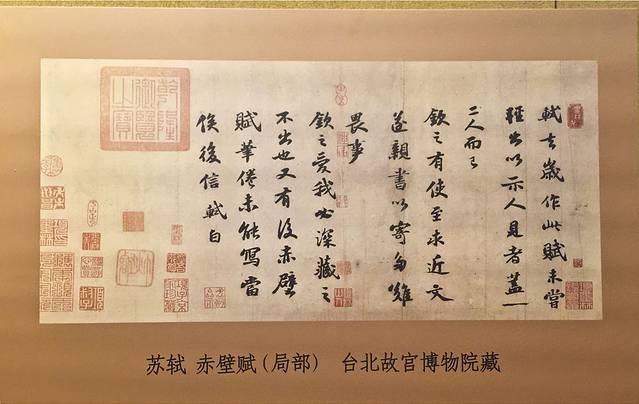 軾去歲作此賦未嘗
輕出以示人見者蓋一
二人而已
欽之有使至求近文
遂親書以寄多難
畏事
欽之愛我必深藏之
不出也又有後赤壁
賦筆倦未能寫當
俟後信軾白
乾隆
御覽
之寶
苏轼 赤壁赋(局部) 台北故宫博物院藏